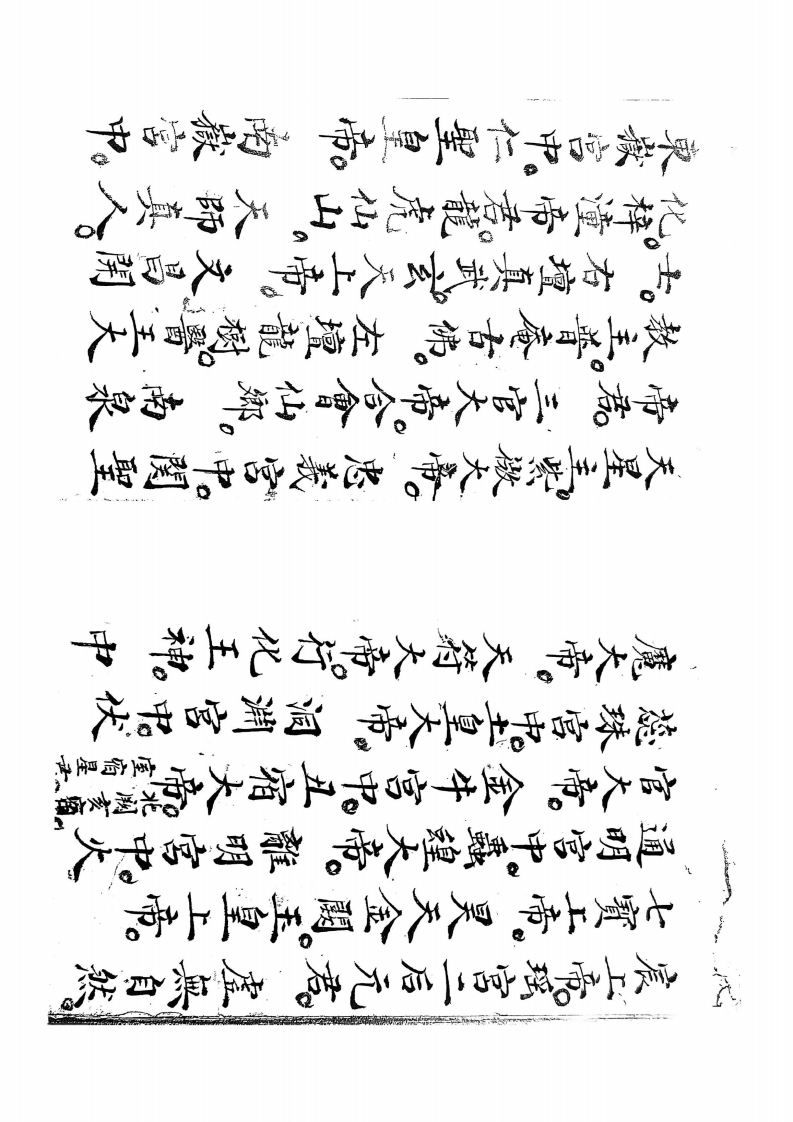 宸上帝。瑤宮二后元君。虛無自然。
七寶上帝。昊天金闕玉皇上帝。
通明宮中蠶蝗大帝。離明宮中火
官大帝。金牛宮中丑宿大帝。北闕亥宿室宿星君
慈珠宮中土皇大帝。洞淵宮中伏
魔大帝。天符大帝。行化王神。中
天星主紫微大帝。忠義宮中關聖
帝君。三官大帝。合會仙鄉。南泉
教主普庵古佛。左壇龍樹醫王大
士。右壇真武玄天上帝。文昌開
化梓潼帝君。龍虎仙山。天師真人。
東嶽宮中仁聖皇帝。南嶽宮中